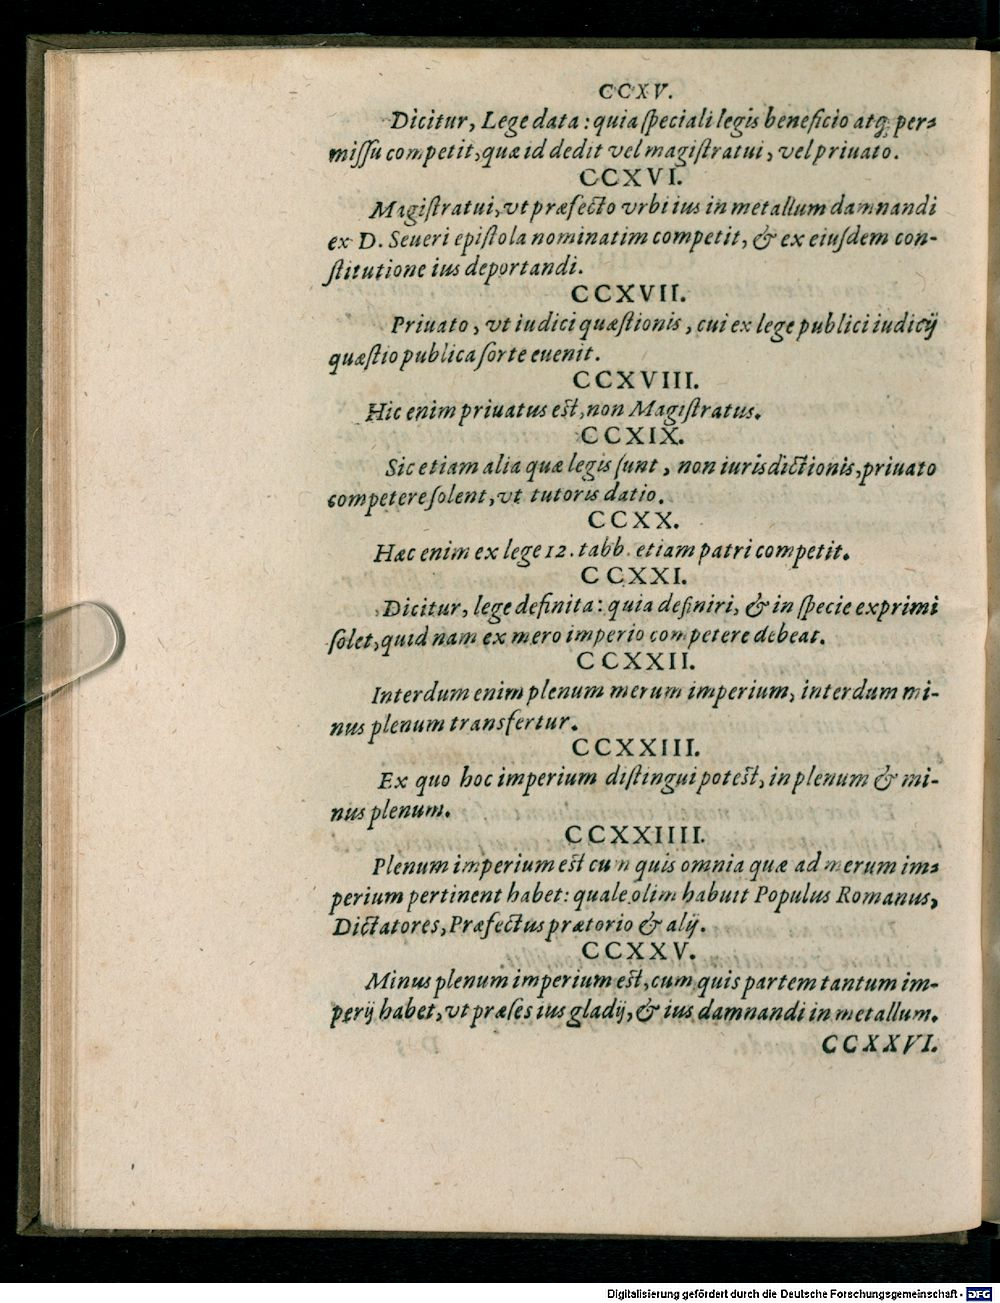 CCXV.
Dicitur, Lege data: quia ſpeciali legis beneficio atq; per-
miſſu competit, quæ id dedit vel magiſtratui, vel priuato.
CCXVI.
Magiſtratui, vt præfecto vrbi ius in metallum damnandi
ex D. Seueri epiſtola nominatim competit, & ex eiuſdem con-
ſtitutione ius deportandi.
CCXVII.
Priuato, vt iudici quæſtionis, cui ex lege publici iudicij
quæſtio publica ſorte euenit.
CCXVIII.
Hic enim priuatus est, non Magiſtratus.
CCXIX.
Sic etiam alia quæ legis ſunt, non iurisdictionis, priuato
competere ſolent, vt tutoris datio.
CCXX.
Hæc enim ex lege 12. tabb. etiam patri competit.
CCXXI.
Dicitur, lege definita: quia definiri, & in ſpecie exprimi
ſolet, quid nam ex mero imperio competere debeat.
CCXXII.
Interdum enim plenum merum imperium, interdum mi-
nus plenum transfertur.
CCXXIII.
Ex quo hoc imperium diſtingui potest, in plenum & mi-
nus plenum.
CCXXIIII.
Plenum imperium est cum quis omnia quæ ad merum im-
perium pertinent habet: quale olim habuit Populus Romanus,
Dictatores, Præfectus prætorio & alij.
CCXXV.
Minus plenum imperium est, cum quis partem tantum im-
perij habet, vt præſes ius gladij, & ius damnandi in metallum.
CCXXVI.
Digitalisierung gefördert durch die Deutsche Forschungsgemeinschaft - DFG